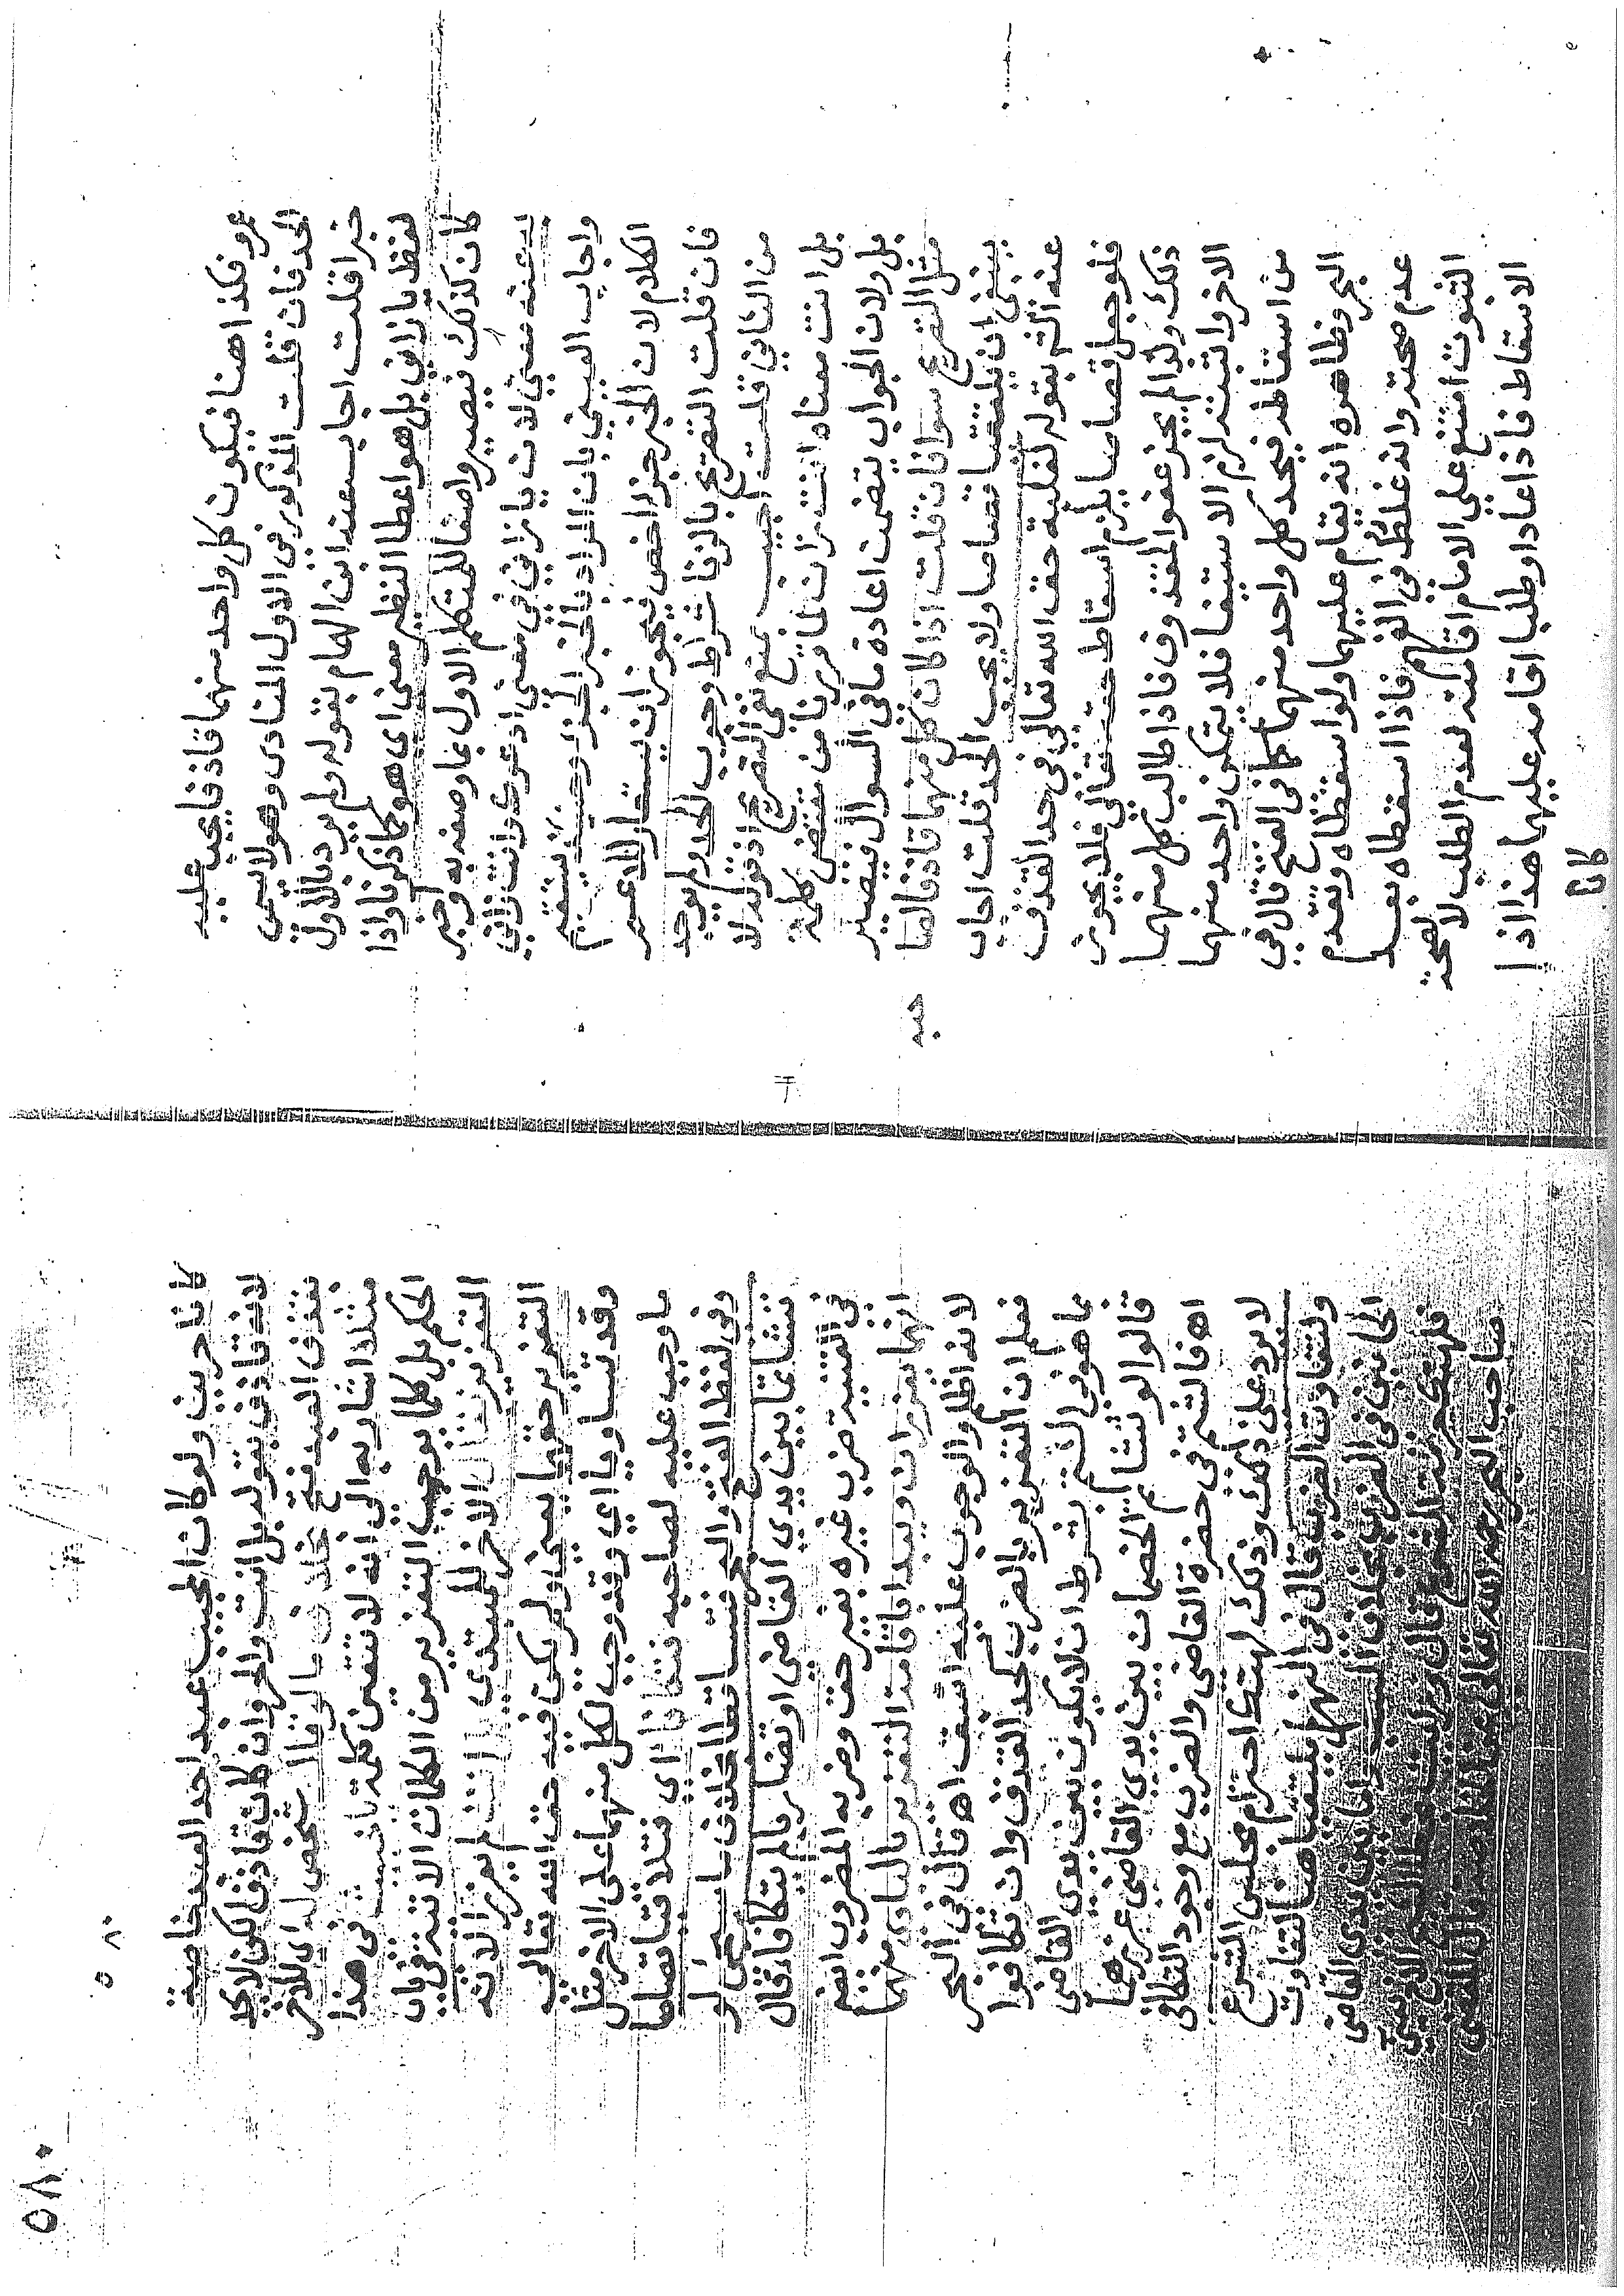 عمرو فكذا هنا فيكون كل واحد منهما قاذفا يجب عليه
الحد فان قلت المذكور في الاول المنادى وهو لا يسمى
خبرا قلت اجاب عنه ابن الهمام بقوله ولم يرد بالاول
لفظ يا زاني بل هو اعطا النظير معنى اى هو كما ذكرنا واذا
كان كذلك فيصير واصفا للمتكلم الاول بما وصفه به وخبر
يا زاني في معنى ادعوك وانت زاني
واجاب العيني بان المراد بالخبر الجزء وحينئذ يستقيم
الكلام لان الخبر جزء اخص فيجوز ان يستعار للاعم
فان قلت التصريح بالزنا شرط وجوب الحد ولم يوجد
من الثاني قلت اجيب بمنع نفى التصريح اذ قوله لا
بل انت معناه انت زان لما قررنا من مقتضى كلمة
بل ولان الجواب يتضمن اعادة ما في السوال فيصير
مثل التصريح سوا فان قلت اذا كان كل منهما قاذفا لصا
ينبغي ان يلتقيا قصاصا ولا يجب الحد قلت اجاب
عنه بقوله لغلبة حق الله تعالى في حد القذف
فلو جعل قصاصا يلزم اسقاط حقه تعالى فلا يجوز
ذلك ولذا لم يجز عفو المقذوف فاذا طالب كل منهما
الاخر واثبته لزم الاستيفا فلا يتمكن واحد منهما
من اسقاطه فيحد كل واحد منهما كما في الفتح قال في
البحر وظاهره انه يقام عليهما ولو اسقطاه وتقدم
عدم صحته وانه غلط في الفهم فاذا اسقطاه بعد
الثبوت امتنع على الامام اقامته لعدم الطلب لا لصحة
الاسقاط فاذا عادا وطلبا اقامه عليهما هذا اذا
كانا
فيه
٥٨٠
كانا حرين ولو كان المجيب عبدا حد العبد خاصة
لانه قاذف بقوله بل انت والحر وان كان قاذفا لكن لا يحد
بقذف العبد فتح خلاف ما لو قال شخص له اى للاخر
مثلا اشار به الى انه لا تتعين كلمة يا خبيث في هذا
الحكم بل كل ما يوجب التعزير من الكلمات الا تترقى بان
التعزير فقال الاخر للمبتدى بل انت لم يعزرا لانه
التعزير حقهما يعني ولم يكن فيه حق الله تعالى
وقد تساويا اى وقد وجب لكل منهما على الاخر مثل
ما وجب عليه لصاحبه فتكافا اى فتلاقيا قصاصا
وفي لفظ الفتح والبحر فتساقطا بخلاف ما سيجي لو
تشاتما بين يدي القاضي او تضاربا لم يتكافا قال
في القنية ضرب غيره بغير حق وضربه المضروب ايضا
انهما يعزران ويبدا باقامة التعزير بالبادي منهما
لانه اظلم والوجوب عليه اسبق اه قال في البحر
فعلم ان التعزير بالضرب كحد القذف وان تكافوا
بما هو في الشتم بشرط ان لا يكون بين يدى القاضي
قالوا لو تشاتم الخصمان بين يدى القاضي عزرهما
اه فالشتم في حضرة القاضي والضرب مع وجود التكافي
لا يرد على ذلك وذلك لهتك احترام مجلس الشرع
ولتفاوت الضرب قال في النهر يلتقيا هنا لتفاوت